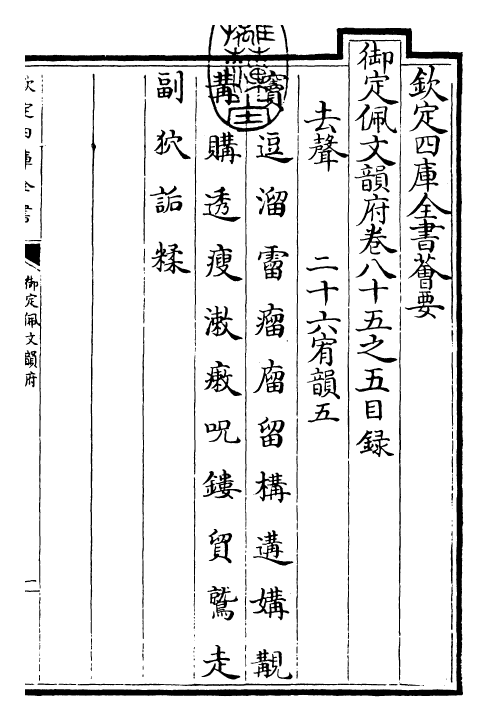 欽定四庫全書薈要
御定佩文韻府卷八十五之五目録
去聲 二十六宥韻五
竇逗溜霤瘤廇留構遘媾覯
購透瘦漱瘷呪鏤貿鷲走
副狖詬糅
欽定四庫全書
御定佩文韻府
一